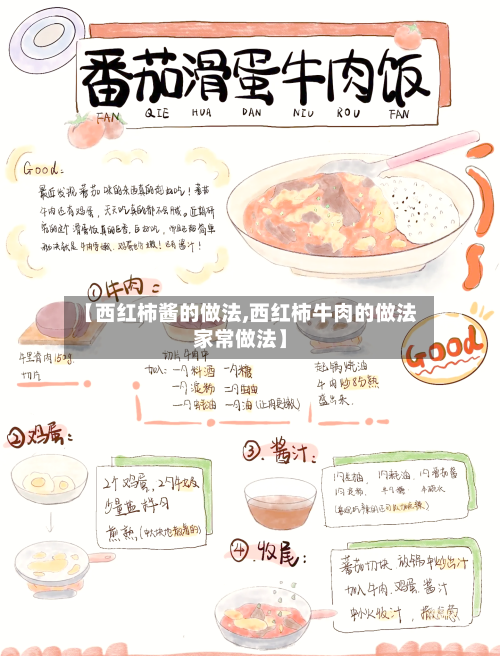 番茄滑蛋牛肉饭
FAN QIE HUA DAN NIU ROU FAN
Good:
最近发现番茄味的东西真的超好吃！番茄
牛肉还有鸡蛋，天天吃真的都不会腻。近期研
①牛肉：
【西红柿酱的做法,西红柿牛肉的做法
家常做法】
牛里脊肉150g
切片
加入：一勺料酒 一勺糖
一勺淀粉 二勺生抽
一勺蚝油 一勺油
起锅烧油
牛肉炒8分熟
盛出来.
Good
②鸡蛋：
2个鸡蛋，2勺牛奶
少量盐拌匀
煎熟
③.酱汁：
1勺生抽, 1勺耗油, 1勺番茄酱
1勺淀粉, 半勺糖 半碗水
④.收尾：
番茄切块 放锅中炒出汁
加入牛肉.鸡蛋.酱汁
中小火收汁，撒点葱